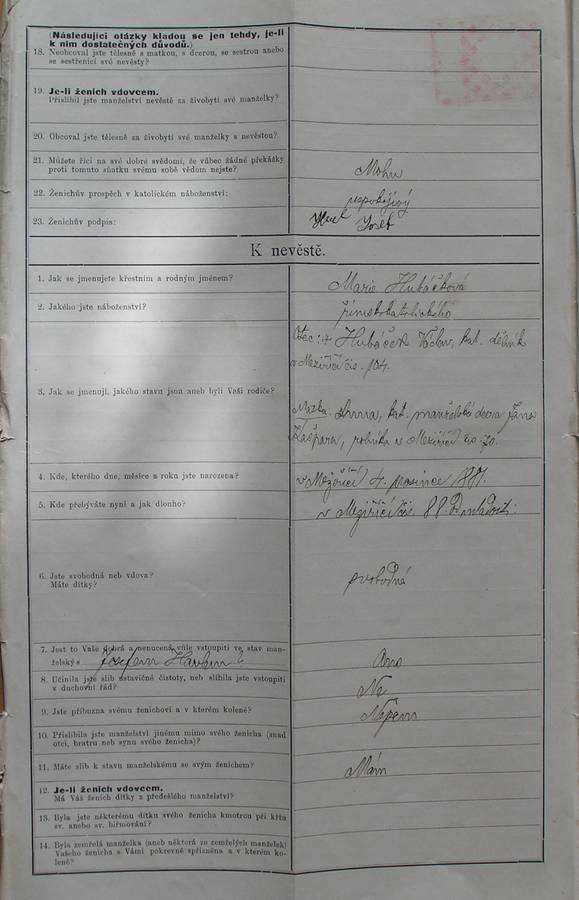 (Následující otázky kladou se jen tehdy, je-li
k nim dostatečných důvodů.)
18. Neobcoval jste tělesně s matkou, s dcerou, se sestrou anebo
se sestřenicí své nevěsty?
19. Je-li ženich vdovcem.
Přislíbil jste manželství nevěstě za živobytí své manželky?
20. Obcoval jste tělesně za živobytí své manželky s nevěstou?
21. Můžete říci na své dobré svědomí, že vůbec žádné překážky
proti tomuto sňatku svému sobě vědom nejste?
Mohu
22. Ženichův prospěch v katolickém náboženství:
uspokojivý
23. Ženichův podpis:
Josef
K nevěstě.
1. Jak se jmenujete křestním a rodným jménem?
Marie Hubáčková
2. Jakého jste náboženství?
římskokatolického
Otec: + Hubáček Václav, kat. dělník
v Meziříčí čís. 104.
3. Jak se jmenují, jakého stavu jsou aneb byli Vaši rodiče?
Matka: Anna, kat. manželská dcera Jana
Kašpara, rolníka v Meziříčí čís. 70.
4. Kde, kterého dne, měsíce a roku jste narozena?
v Meziříčí 4. prosince
5. Kde přebýváte nyní a jak dlouho?
v Meziříčí čís. 88 Od mladosti
6. Jste svobodná neb vdova?
Máte dítky?
svobodná
7. Jest to Vaše dobrá a nenucená vůle vstoupiti ve stav man-
želský s Josefem
Ano
8. Učinila jste slib ustavičné čistoty, neb slíbila jste vstoupiti
v duchovní řád?
Ne
9. Jste příbuzna svému ženichovi a v kterém koleně?
Nejsem
10. Přislíbila jste manželství jinému mimo svého ženicha (snad
otci, bratru neb synu svého ženicha)?
11. Máte slib k stavu manželskému se svým ženichem?
Mám
12. Je-li ženich vdovcem.
Má Váš ženich dítky z předešlého manželství?
13. Byla jste některému dítku svého ženicha kmotrou při křtu
sv. anebo sv. biřmování?
14. Byla zemřelá manželka (aneb některá ze zemřelých manželek)
Vašeho ženicha s Vámi pokrevně spřízněna a v kterém ko-
leně?